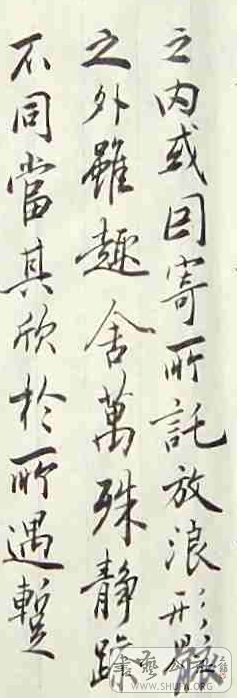 之内或因寄所託放浪形骸
之外雖趣舍萬殊静躁
不同當其欣於所遇蹔
書藝公社
WWW.SHUFA.ORG